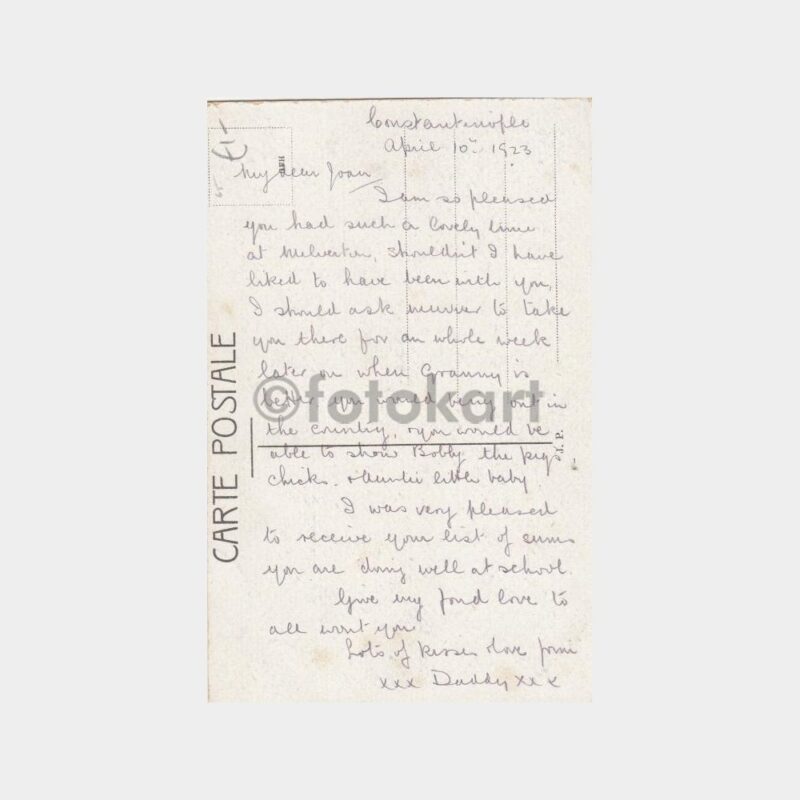 Constantinople
April 10th 1923
My dear Joan
I am so pleased
you had such a lovely time
at Milverton, Shouldn't I have
liked to have been with you,
I should ask mummy to take
you there for an whole week
later on when Granny is
better you would being out in
the country, & you would be
able to show Bobby the pigs
chicks. & Auntie little baby
I was very pleased
to receive your list of sums
you are doing well at school.
Give my fond love to
all wont you
Lots of kisses & love from
xxx Daddy xxx
CARTE POSTALE
J. P.
©fotokart